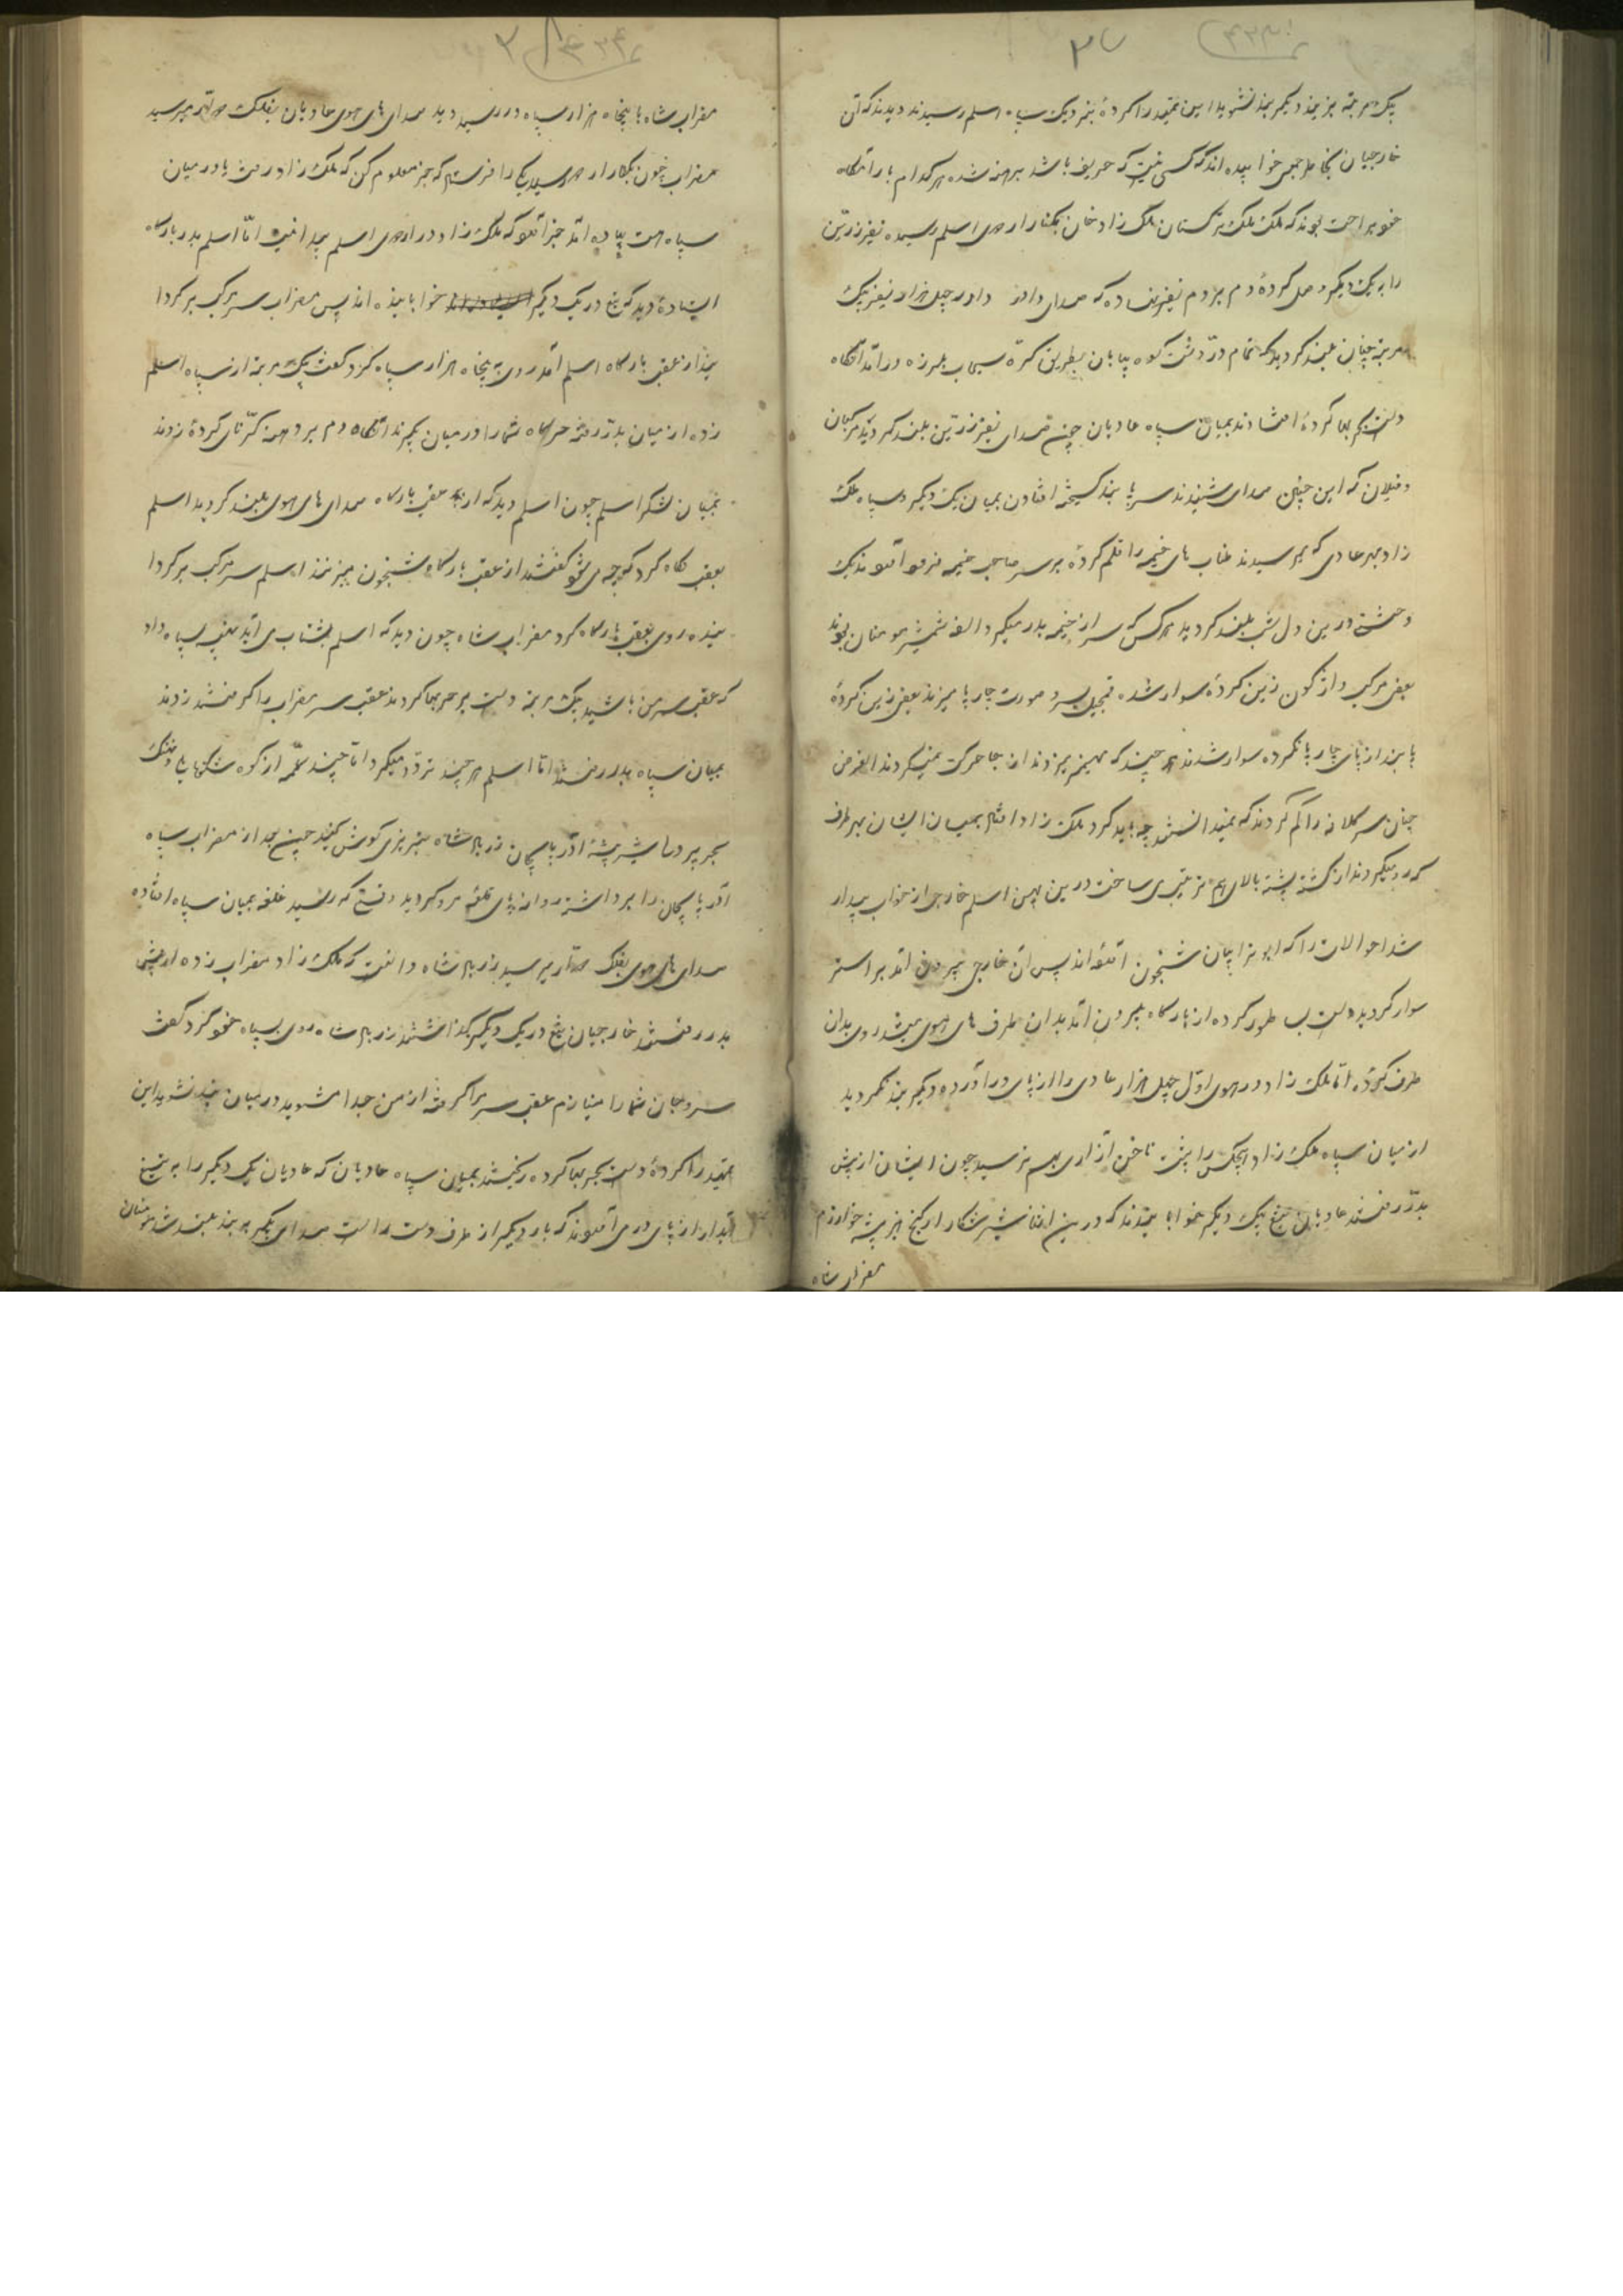 یک مرتبه بزنید دیگر بند نشوید این تقید را کرده نزدیک سپاه اسلم رسیدند دیدند که آن
خارجیان بخاطر جمعی خوابیده اند که کسی نیست که حریف باشد برهنه شده هرکدام بارامگاه
خو براحت بودند که ملک ملک ترکستان ملک زاد خان بکنار اردوی اسلم رسیده نفیر زرین
را به یک دیگر وصل کرده دم بر دم نفیر نهاده که صدای داد چهل هزار نفیر یک
مرتبه چنان بلند گردید که تمام در و دشت کوه بیابان بطریق کره سیماب بلرزه در آمد آنگاه
دست بحربها کرده افتادند بمیان سپاه عادیان چون صدای نفیر زرین بلند گردید مرکبان
و فیلان که این چنین صدای شنیدند سر پا بند گسیخته افتادن بمیان یک دیگر و سپاه ملک
زاد بهر عادی که میرسیدند طناب های خیمه را قلم کرده بر سر صاحب خیمه فرمو آمدند یک
وحشتی در این دل شب بلند گردید هرکس که سر از خیمه بدر میکرد الف شمشیر مومنان بودند
بعضی مرکب واژگون زین کرده سوار شده قمچین بسر و صورت چارپا میزند بعضی زین کرده
پا بند از پای چارپا نکرده سوار شدند هر چند که مهمیز میزدند از جا حرکت نمی کردند الغرض
چنان سر کلافه را گم کردند که نمیدانستند چه باید کرد ملک زاد افتاد بمیان ایشان بهر طرف
که رو میکردند از کشته پشته بالای هم ترتیب می ساخت در این بین اسلم خارجی از خواب بیدار
شد احوالات را که ابوترابیان شبخون آمده اند پس آن خارجی بیرون آمد بر استر
سوار گردید دست بطور کرده از بارگاه بیرون آمد بدان طرف های هوی میشد روی بدان
طرف کرده اما ملک زاد در هوی اول چهل هزار عادی را از پای در آورده دیگر بند نگردید
از میان سپاه ملک زاد هیچکس را پشت ناخن آزاری هم نرسید چون ایشان از پیش
بدر رفتند عادیان تیغ یک دیگر خوابانیدند که در این اثنا شیر شکار ارگنج ببر بیشه خوارزم
مضراب شاه
مضراب شاه با پنجاه هزار سپاه در رسید دید صدای های هوی عادیان بفلک دوار میرسید
مضراب چون بکنار اردو رسید یکی را فرستاد که خبر معلوم کن که ملک زاد در میان
سپاه هست پیاده آمد خبر آورد که ملک زاد در اردوی اسلم پیدا نیست اما اسلم بدر بارگاه
ایستاده دید که تیغ در یک دیگر خوابانیده اند پس مضراب سر مرکب برگردا
نید از عقب بارگاه اسلم آمد روی به پنجاه هزار سپاه کرد گفت یک مرتبه از سپاه اسلم
زده از میان بدر رفته هرگاه شما را در میان بگیرند آنگاه دم بر دهن کرنای کرده زدند
بمیان لشکر اسلم چون اسلم دید که از عقب بارگاه صدای های هوی بلند گردید اسلم
بعقب نگاه کرد که چه می شو گفتند از عقب بارگاه شبخون میزنند اسلم سر مرکب برگردا
نیده روی بعقب بارگاه کرد مضراب شاه چون دید که اسلم بشتاب می آید نهیب سپاه داد
که عقب سر من باشید یک مرتبه دست بر حربها کردند عقب سر مضراب را گرفتند زدند
بمیان سپاه بدر رفتند اما اسلم هر چند تردد میکرد اما چند کله از کوه
بحر پر در ما شیر بیشه آذربایجان زریر شاه
آذربایجان را برداشته روانه پای قلعه مرو گردید وقتی که رسید غلغه بمیان سپاه افتاده
صدای های هوی بفلک دوار میرسید زریر شاه دانست که ملک زاد مضراب زده از پیش
بدر رفتند خارجیان تیغ در یک دیگر گذاشتند زریر شاه روی بسپاه خو کرد گفت
سر و جان شما را منازم عقب سر مرا گرفته از من جدا مشوید در میان بند نشوید این
تقید را کرده دست بحربها کرده ریختند بمیان سپاه عادیان که عادیان یک دیگر را به تیغ
آبدار از پای در می آوردند که بار دیگر از طرف دست راست صدای بگیر و ببند بلند شد مومنان